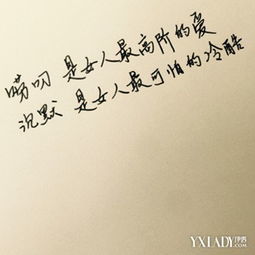 唠叨 是女人最高阶的爱
沉默 是女人最可怕的冷酷
YXLADY伊秀
.COM